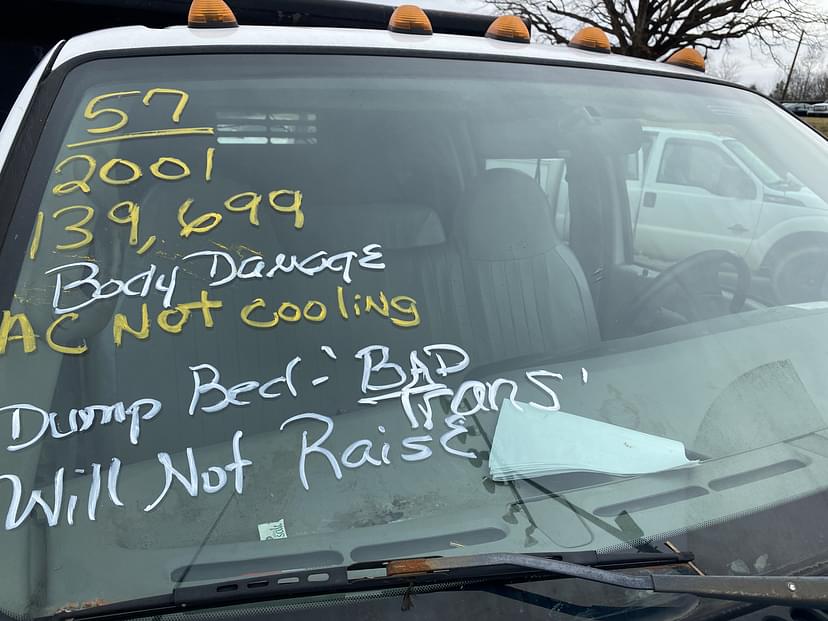 57
2001
139,699
Body Damage
AC Not Cooling
Dump Bed - 'BAD Trans'
Will Not Raise